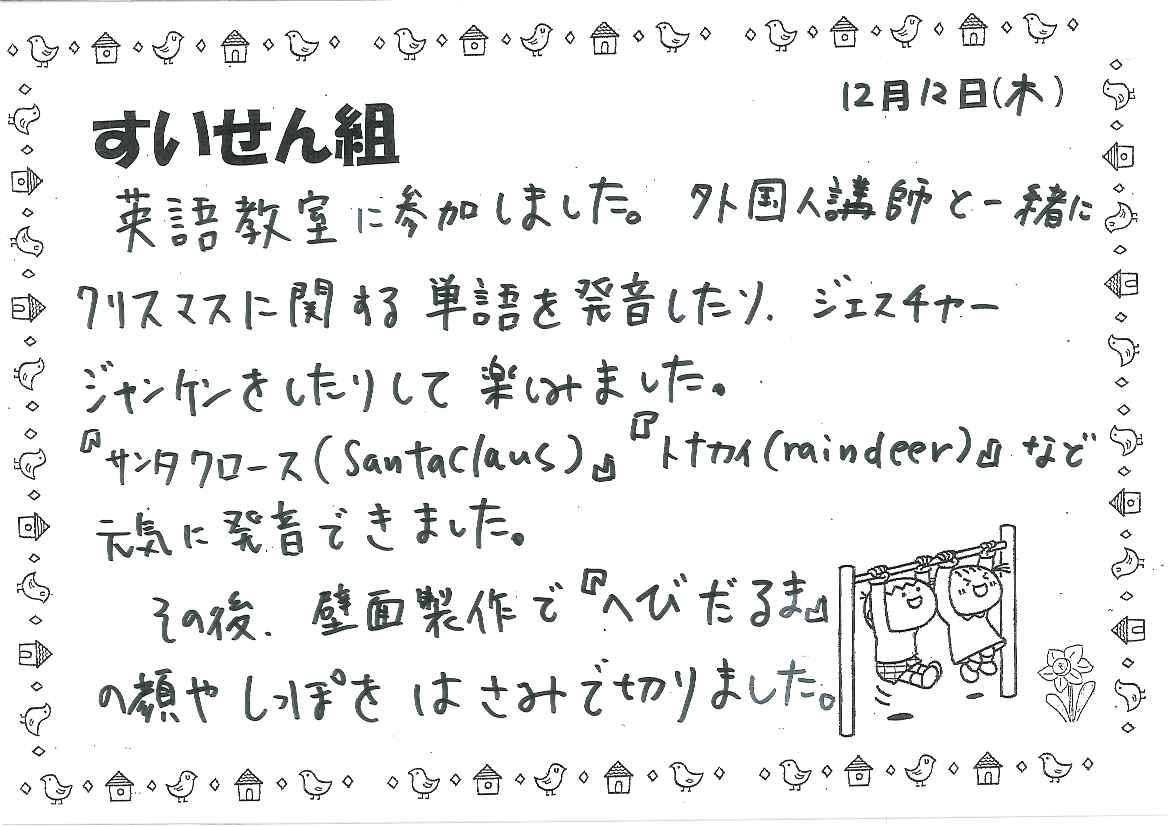 12月12日(木)
すいせん組
英語教室に参加しました。外国人講師と一緒に
クリスマスに関する単語を発音したり、ジェスチャー
ジャンケンをしたりして楽しみました。
『サンタクロース(Santaclaus)』『トナカイ(raindeer)』など
元気に発音できました。
その後、壁面製作で『へびだるま』
の顔やしっぽをはさみで切りました。